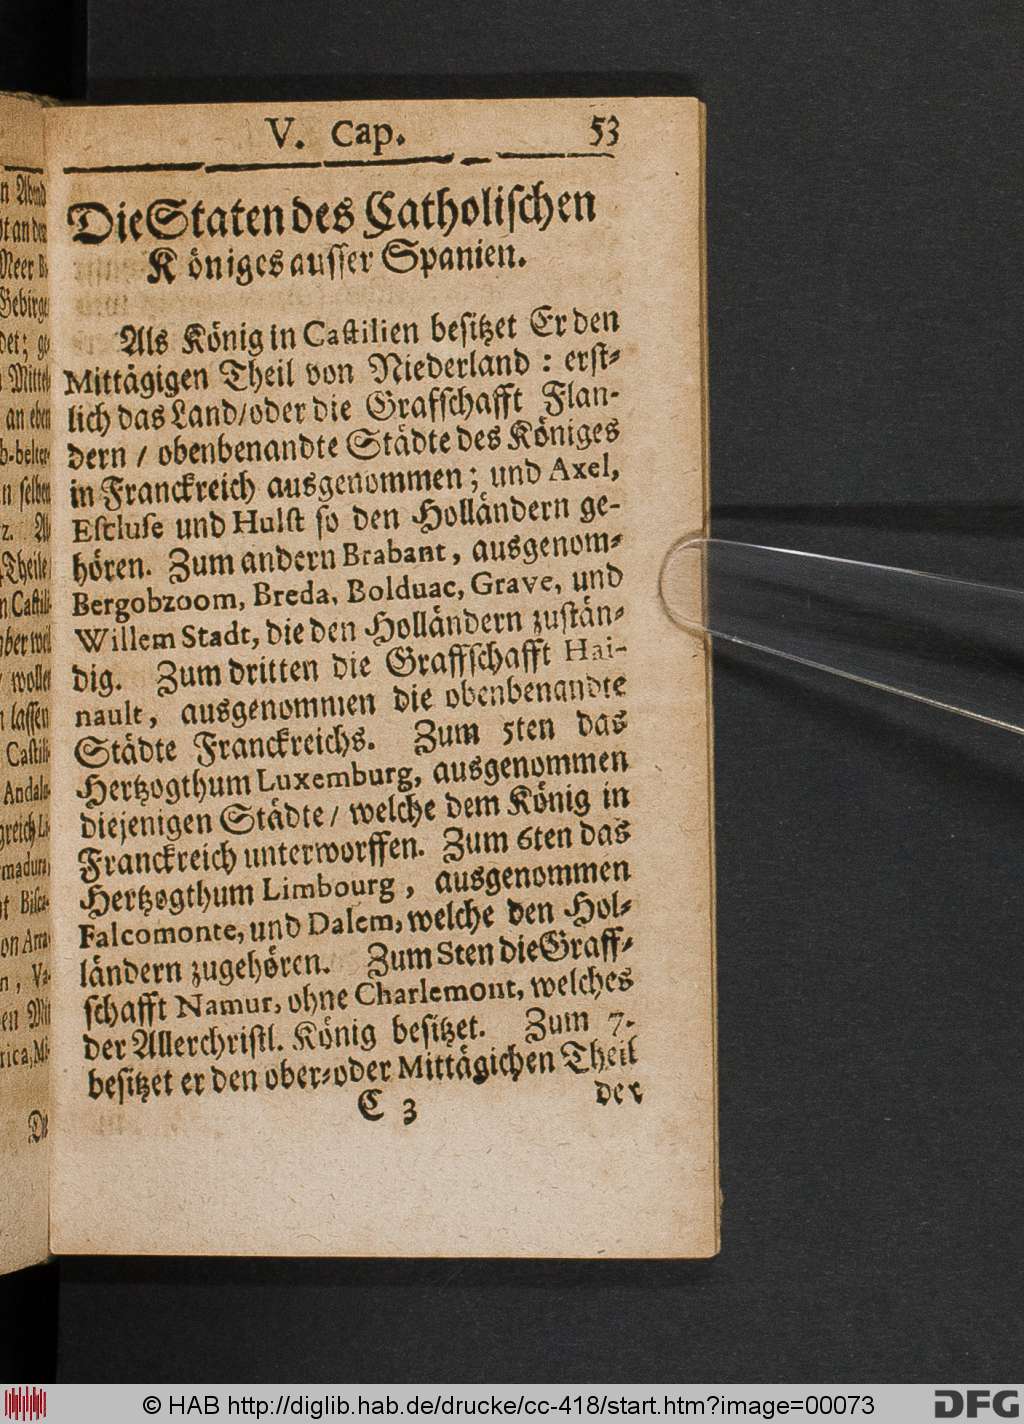 V. Cap. 53
Die Staten des Catholischen
Königes ausser Spanien.
Als König in Castilien besitzet Er den
Mittägigen Theil von Niederland : erst-
lich das Land/oder die Grafschafft Flan-
dern / obenbenandte Städte des Königes
in Franckreich ausgenommen; und Axel,
Escluse und Hulst so den Holländern ge-
hören. Zum andern Brabant, ausgenom-
Bergobzoom, Breda, Bolduac, Grave, und
Willem Stadt, die den Holländern zustän-
dig. Zum dritten die Graffschafft Hai-
nault, ausgenommen die obenbenandte
Städte Franckreichs. Zum 5ten das
Hertzogthum Luxemburg, ausgenommen
diejenigen Städte / welche dem König in
Franckreich unterworffen. Zum 6ten das
Hertzogthum Limbourg, ausgenommen
Falcomonte, und Dalem, welche den Hol-
ländern zugehören. Zum Sten die Graff-
schafft Namur, ohne Charlemont, welches
der Allerchristl. König besitzet. Zum 7.
besitzet er den ober-oder Mittägichen Theil
C 3 der
© HAB http://diglib.hab.de/drucke/cc-418/start.htm?image=00073
DFG